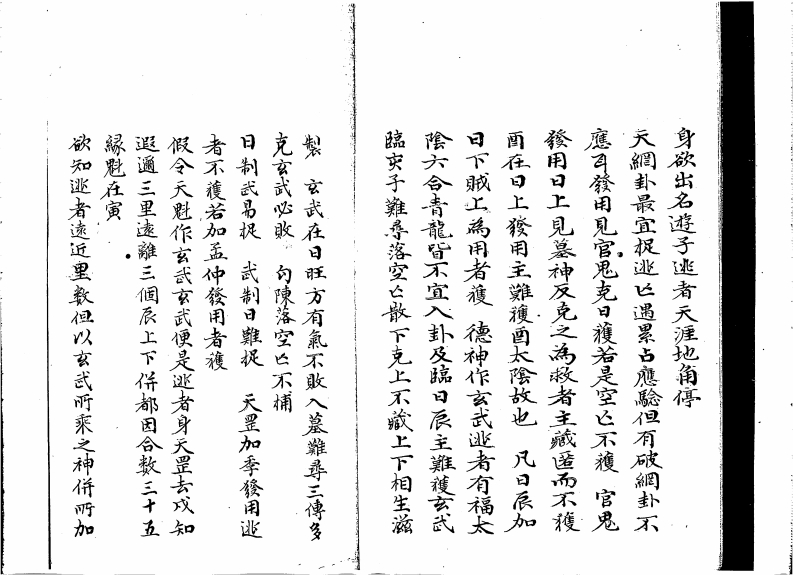 身欲出名遊子逃者天涯地角停
天網卦最宜捉逃亡遇累占應驗但有破網卦不
應丑發用見官鬼克日獲若是空亡不獲　官鬼
發用日上見墓神反克之為救者主藏匿而不獲
酉在日上發用主難獲酉太陰故也　凡日辰加
日下賊上為用者獲　德神作玄武逃者有福太
陰六合青龍皆不宜入卦及臨日辰主難獲玄武
臨亥子難尋落空亡散下克上不藏上下相生滋
製　玄武在日旺方有氣不敗入墓難尋三傳多
克玄武必敗　勾陳落空亡不捕
日制武易捉　武制日難捉　天罡加季發用逃
者不獲若加孟仲發用者獲
假令天魁作玄武玄武便是逃者身天罡去戌知
遐邇三里遠離三個辰上下併都因合數三十五
緣魁在寅
欲知逃者遠近里數但以玄武所乘之神併所加